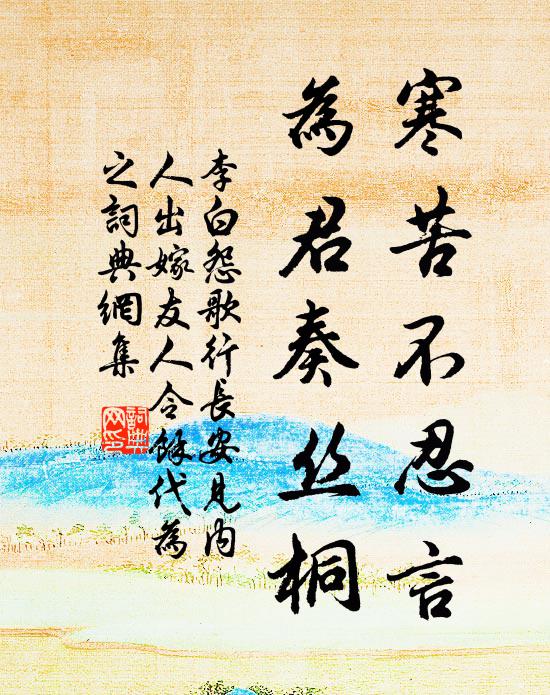 寒苦不忍言
為君奏丝桐
李白怨歌行長安見内
人出嫁友人令餘代為
之詞典網集
詞典网印